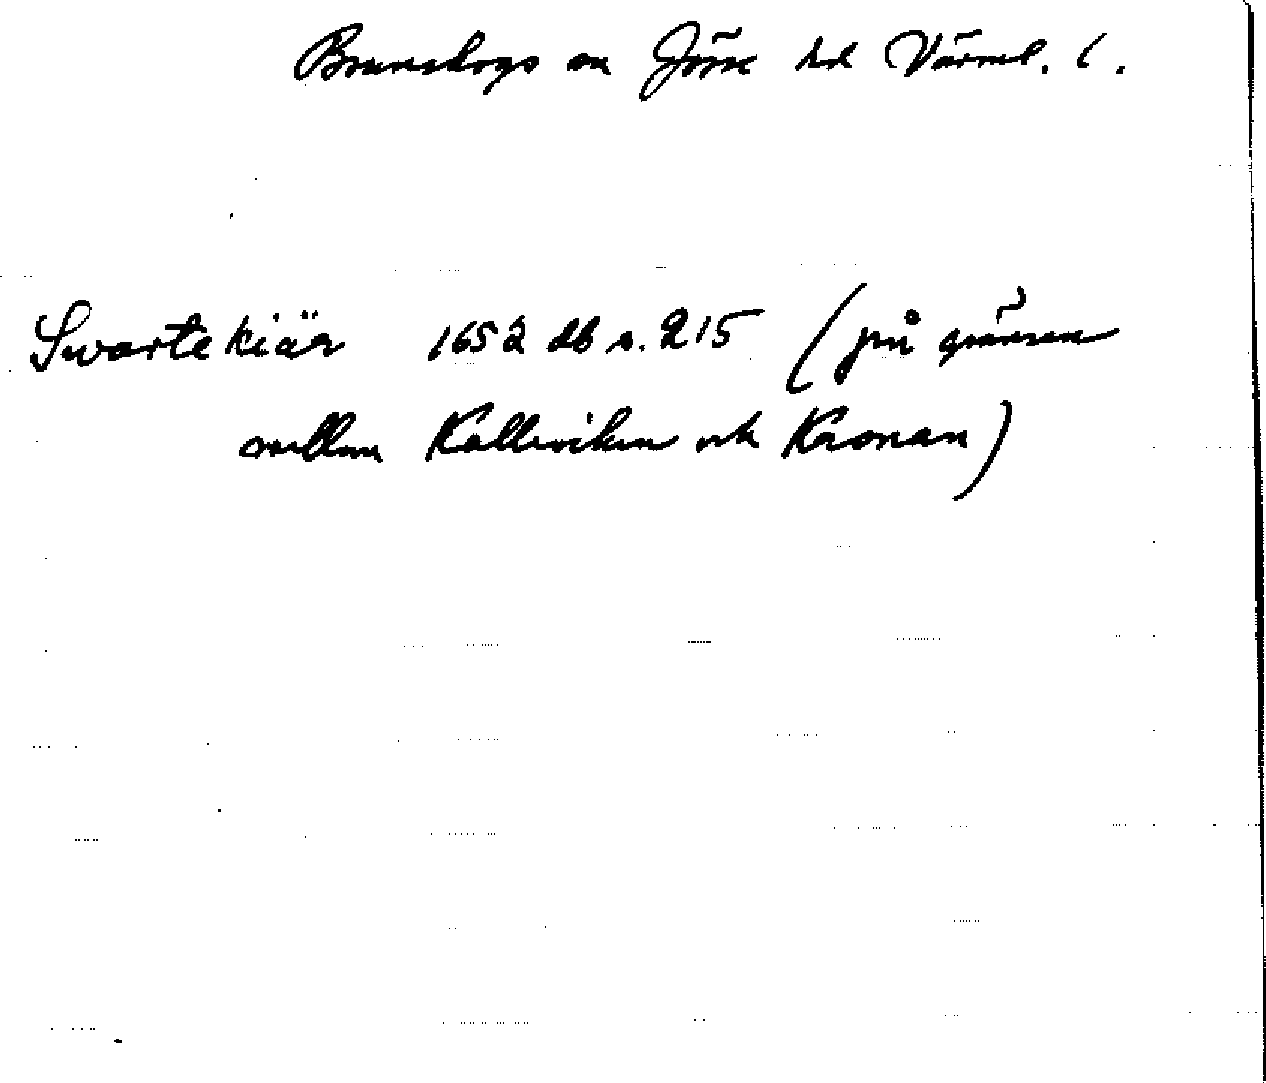 Brunskogs sn Jösse hd Värml. l.
Swartekiär 1652 db s. 215 (på gränsen
mellan Kalleviken och Kronan)